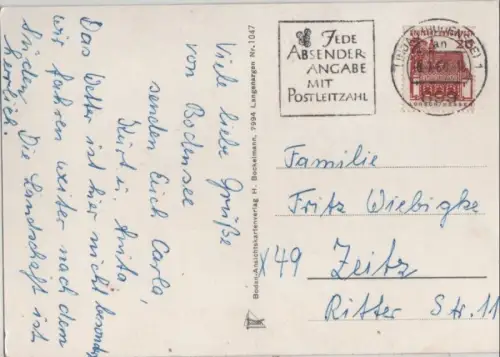 Viele liebe Grüße
von Bodensee
senden Euch Carla,
Kurt u. Anita
Das Wetter ist hier nicht besonders
wir fahren weiter nach dem
Süden. Die Landschaft ist
herrlich.
Boden-Ansichtskartenverlag H. Bockelmann, 7994 Langenargen Nr. 1047
JEDE
ABSENDER-
ANGABE
MIT
POSTLEITZAHL
Familie
Fritz Wiebigke
X49 Zeitz
Ritter Str. 11